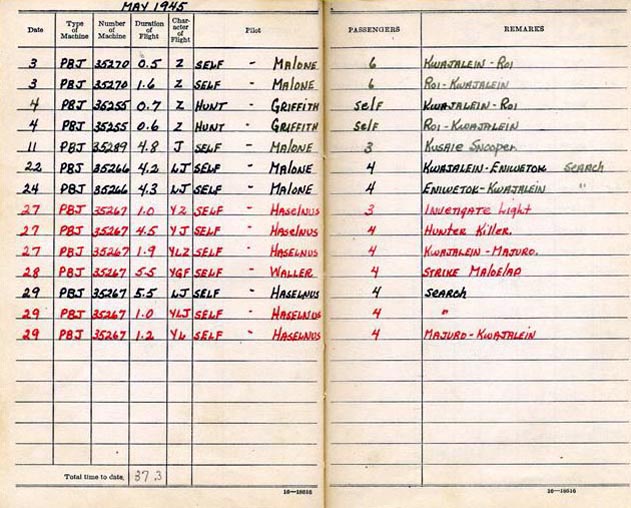 MAY 1945
Date Type of Machine Number of Machine Duration of Flight Char- acter of Flight Pilot PASSENGERS REMARKS
3 PBJ 35270 0.5 Z SELF - MALONE 6 KWAJALEIN - ROI
3 PBJ 35270 1.6 Z SELF - MALONE 6 ROI - KWAJALEIN
4 PBJ 35255 0.7 Z HUNT - GRIFFITH SELF KWAJALEIN - ROI
4 PBJ 35255 0.6 Z HUNT - GRIFFITH SELF ROI - KWAJALEIN
11 PBJ 35289 4.8 J SELF - MALONE 3 KUSAIE SNOOPER
22 PBJ 35266 4.2 LJ SELF - MALONE 4 KWAJALEIN - ENIWETOK SEARCH
24 PBJ 35266 4.3 LJ SELF - MALONE 4 ENIWETOK - KWAJALEIN "
27 PBJ 35267 1.0 YZ SELF - HASELNUS 3 INVENGATE LIGHT
27 PBJ 35267 4.5 YJ SELF - HASELNUS 4 HUNTER KILLER.
27 PBJ 35267 1.9 YLZ SELF - HASELNUS 4 KWAJALEIN - MAJURO.
28 PBJ 35267 5.5 YGF SELF - WALLER 4 STRIKE MALOELAP
29 PBJ 35267 5.5 LJ SELF - HASELNUS 4 SEARCH
29 PBJ 35267 1.0 YLJ SELF - HASELNUS 4 "
29 PBJ 35267 1.2 YL SELF - HASELNUS 4 MAJURO - KWAJALEIN
Total time to date, 37.3
16—18616 16—18616